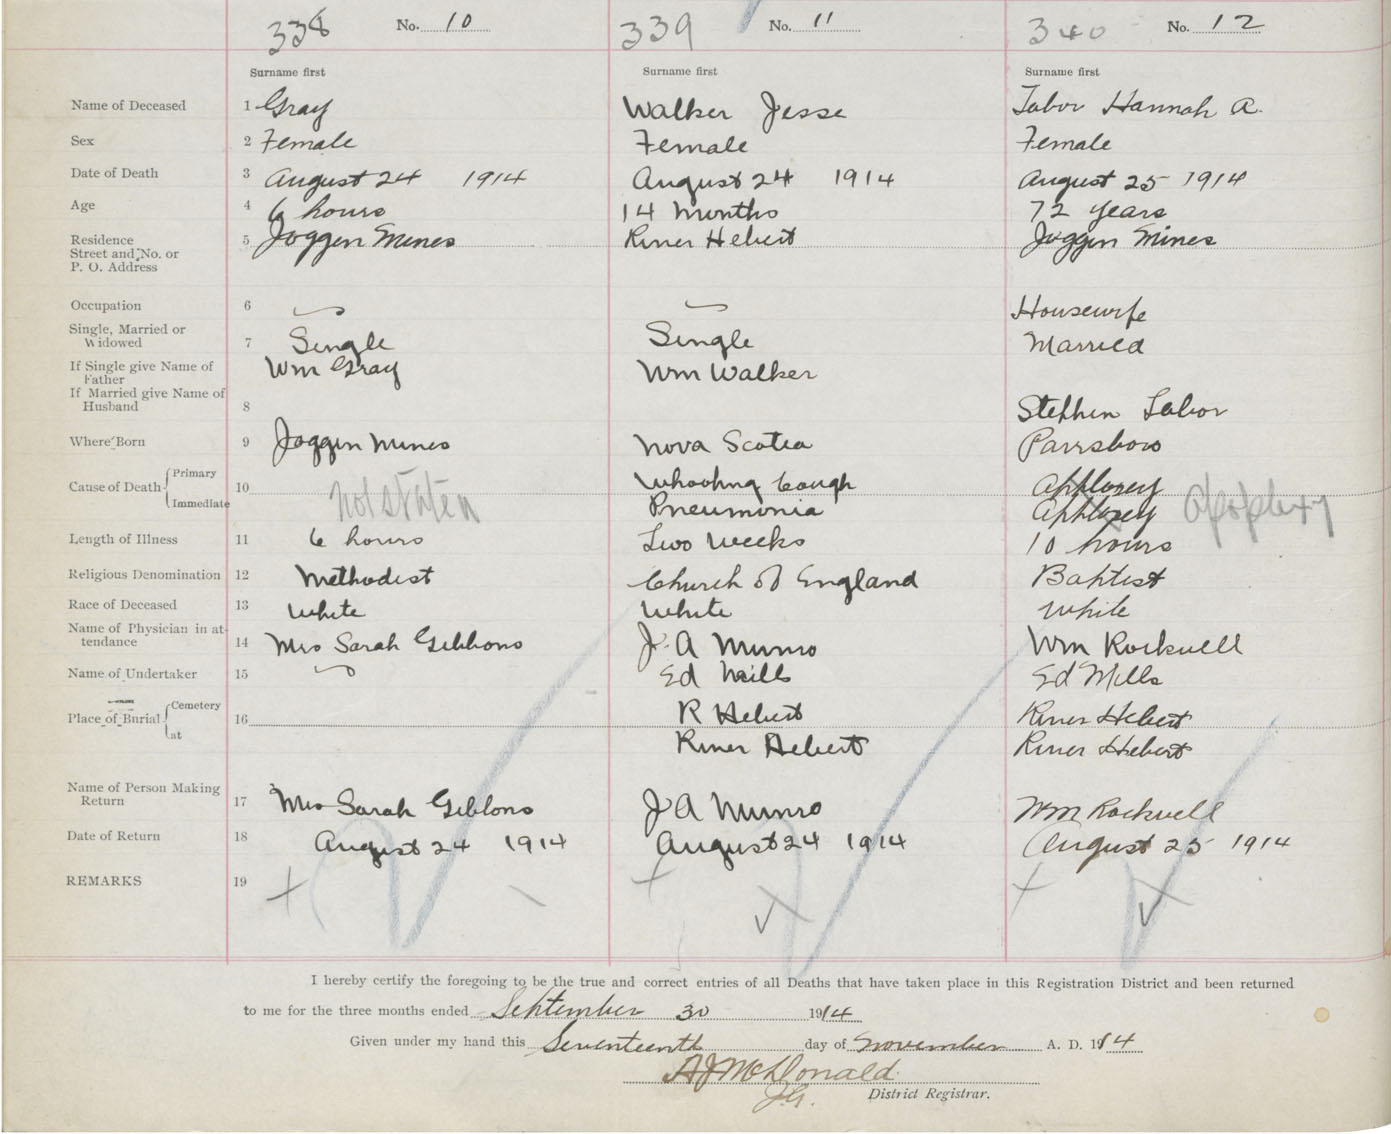 338 No. 10 339 No. 11 340 No. 12
Surname first Surname first Surname first
Name of Deceased 1 Gray Walker Jesse Tabor Hannah A.
Sex 2 Female Female Female
Date of Death 3 August 24 1914 August 24 1914 August 25 1914
Age 4 6 hours 14 Months 72 years
Residence 5 Joggin Mines River Hebert Joggin Mines
Street and No. or
P. O. Address
Occupation 6 Housewife
Single, Married or
Widowed 7 Single Single Married
If Single give Name of Wm Gray Wm Walker
Father
If Married give Name of
Husband 8 Stephen Tabor
Where Born 9 Joggin Mines Nova Scotia Parrsboro
Cause of Death Primary 10 not stated Whooping Cough
Immediate Pneumonia Apoplexy
Length of Illness 11 6 hours Two Weeks 10 hours
Religious Denomination 12 Methodist Church of England Baptist
Race of Deceased 13 White White White
Name of Physician in at-
tendance 14 Mrs Sarah Gibbons J A Munro Wm Rockwell
Name of Undertaker 15 Ed Mills Ed Mills
Place of Burial Cemetery 16 R Hebert River Hebert
at River Hebert River Hebert
Name of Person Making
Return 17 Mrs Sarah Gibbons J A Munro Wm Rockwell
Date of Return 18 August 24 1914 August 24 1914 August 25 1914
REMARKS 19
I hereby certify the foregoing to be the true and correct entries of all Deaths that have taken place in this Registration District and been returned
to me for the three months ended September 30 1914
Given under my hand this Seventeenth day of November A. D. 1914
A J McDonald
J.G. District Registrar.